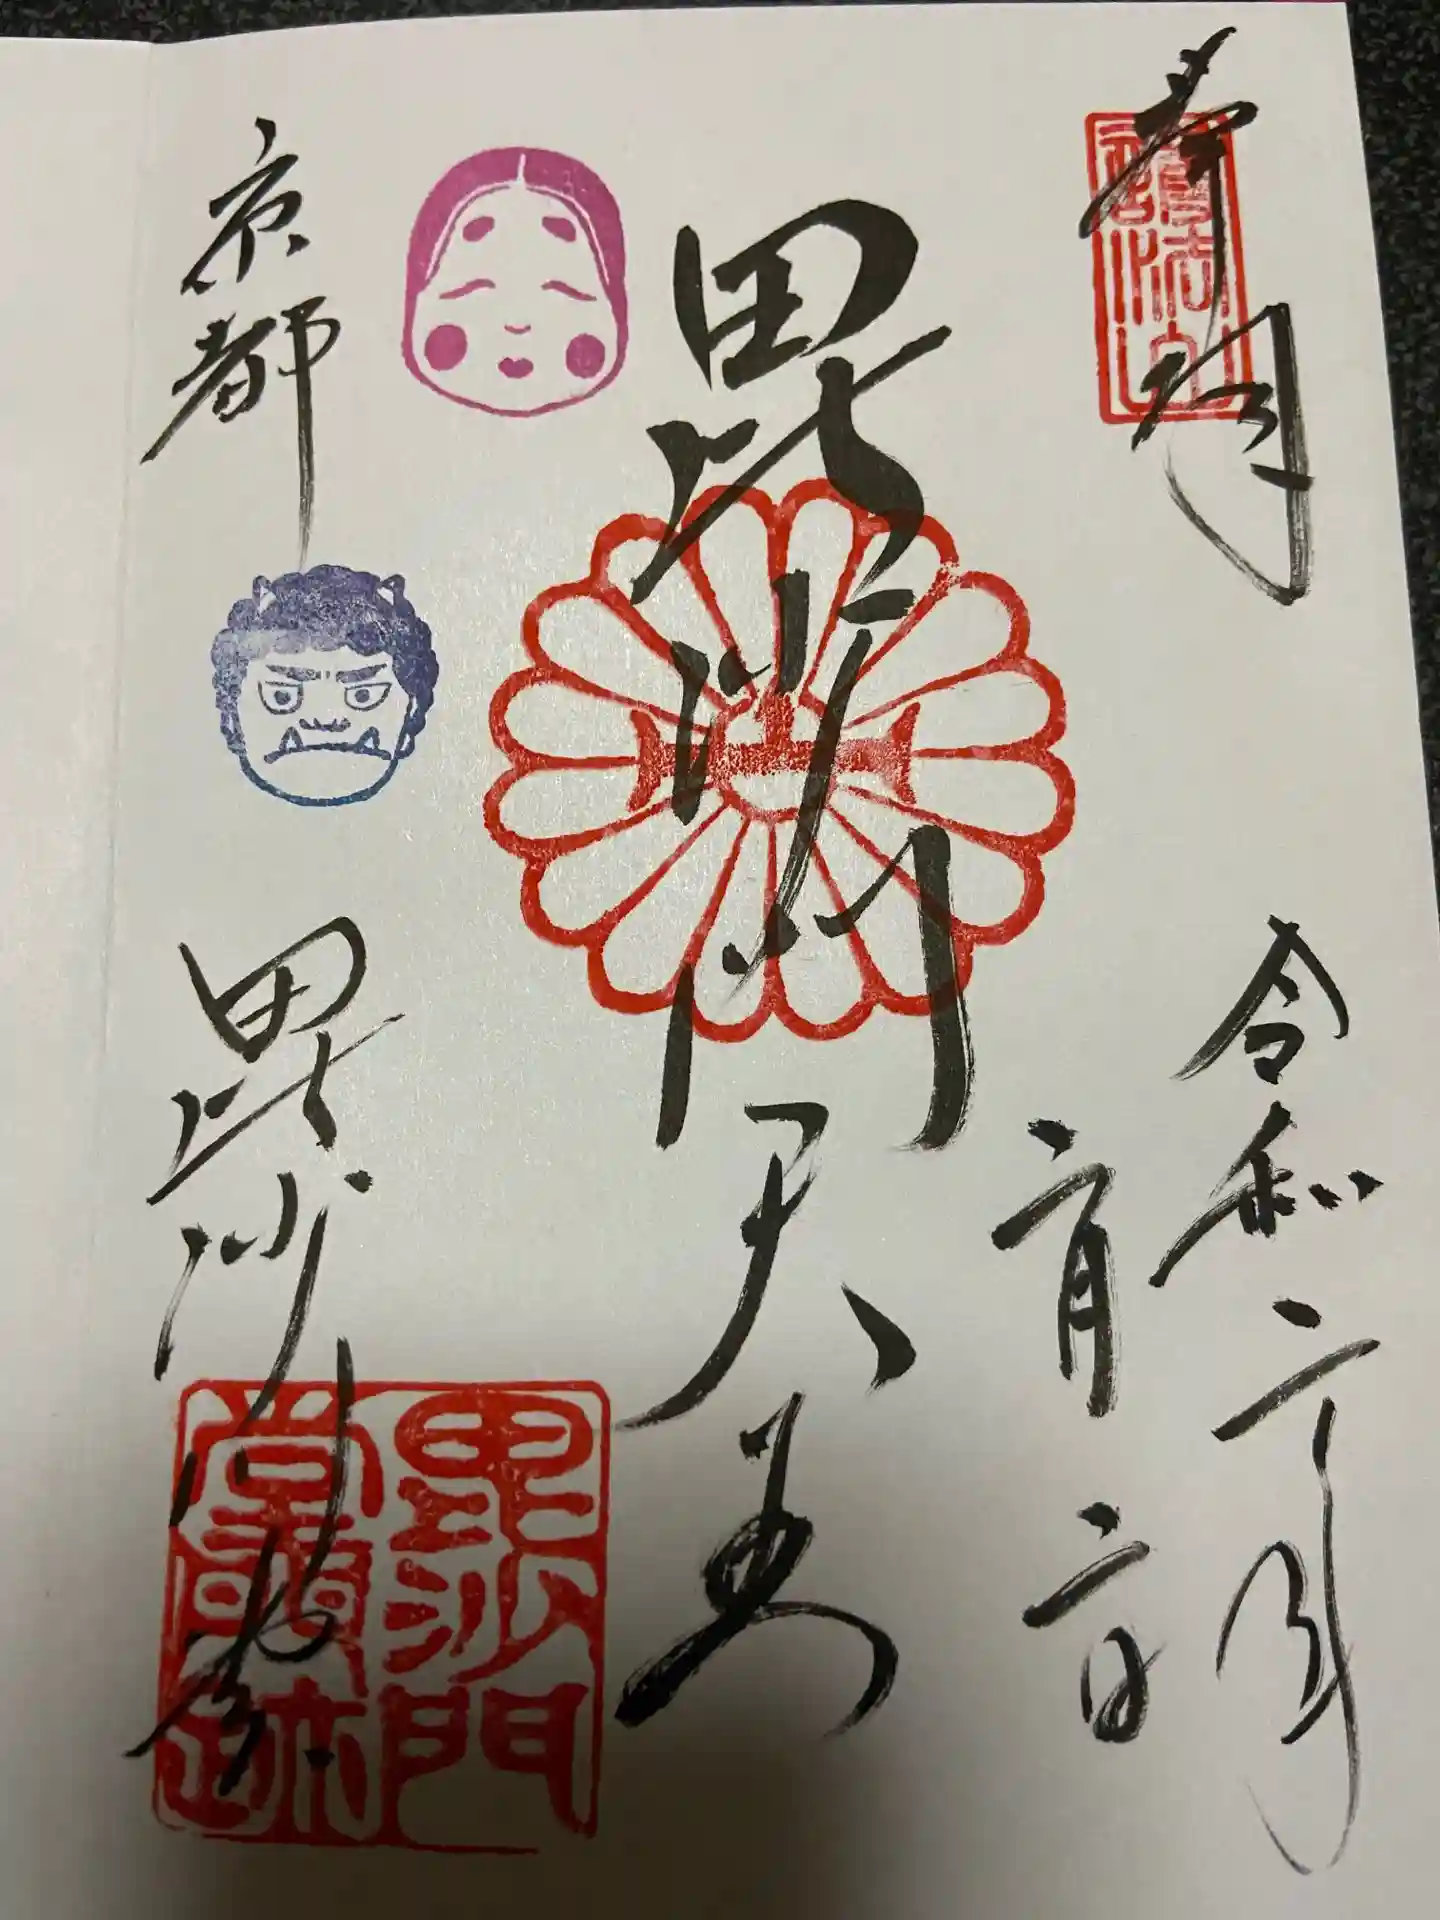 奉拝
護法山
令和二年
二月二日
毘沙門天王
京都
毘沙門堂
毘沙門
堂
跡